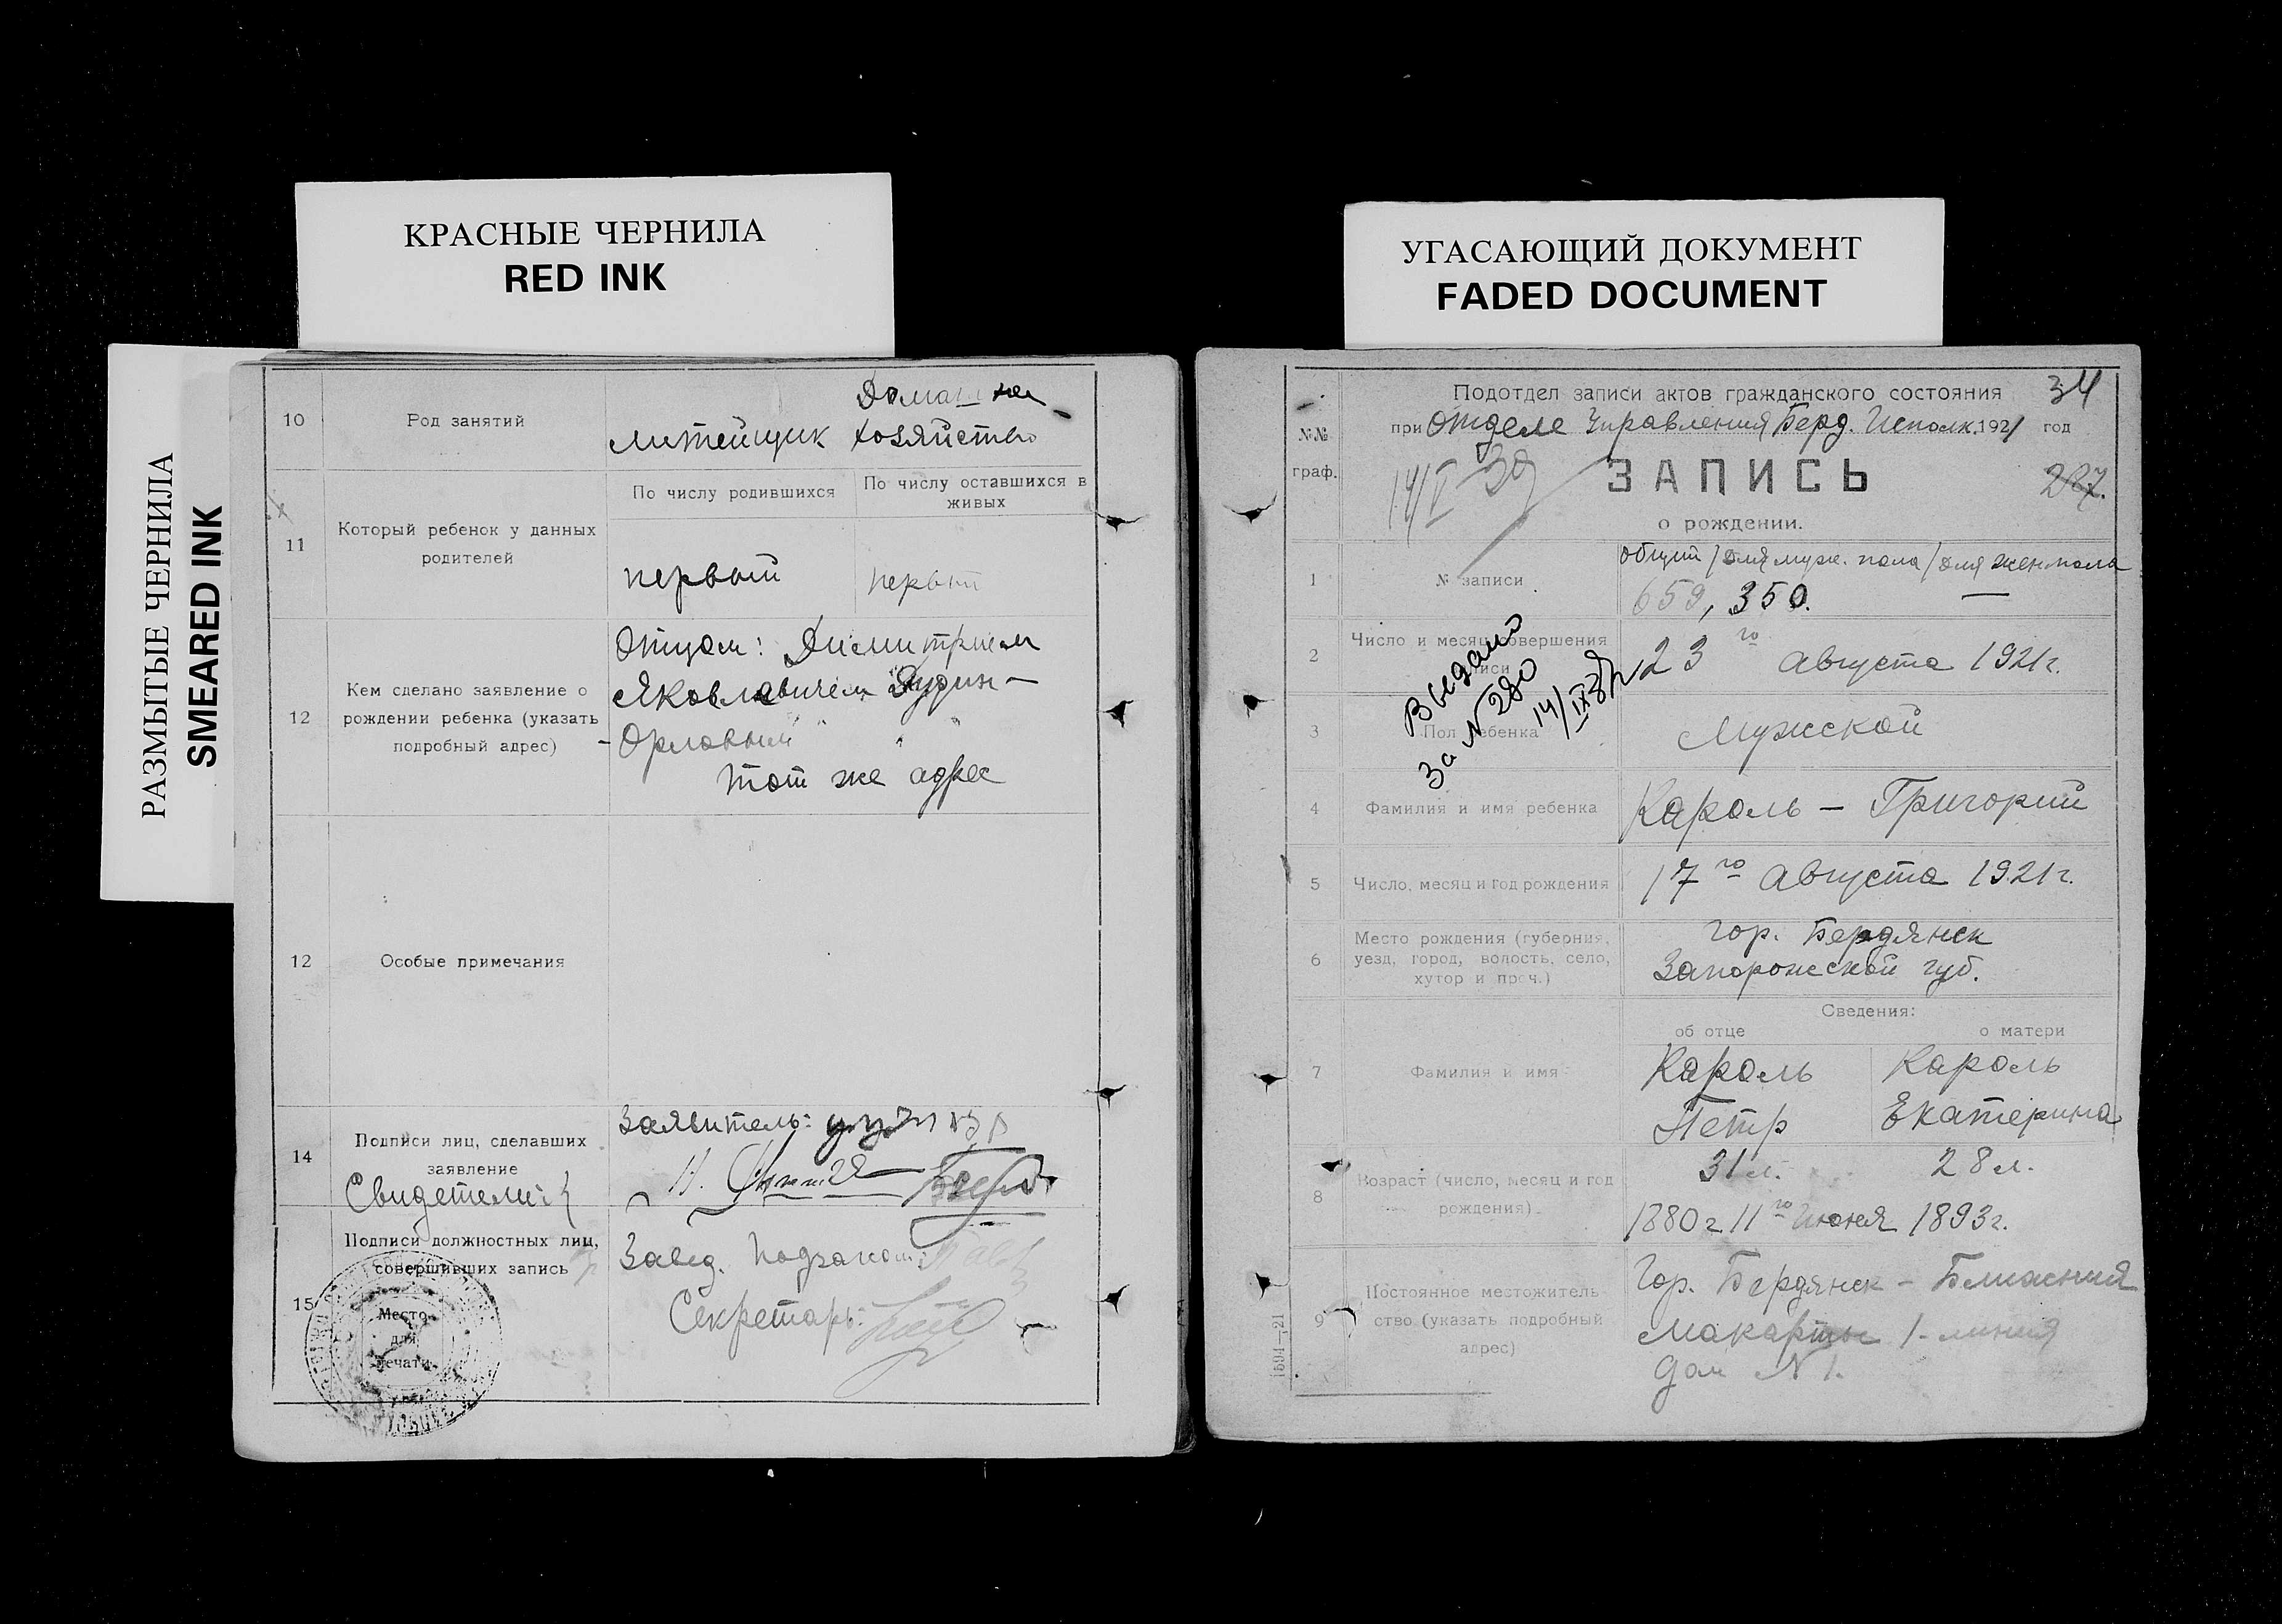 КРАСНЫЕ ЧЕРНИЛА
RED INK
РАЗМЫТЫЕ ЧЕРНИЛА
SMEARED INK
10
Род занятий
литейщик
Домашнее
хозяйство
11
Который ребенок у данных
родителей
По числу родившихся
По числу оставшихся в
живых
первый
первый
12
Кем сделано заявление о
рождении ребенка (указать
подробный адрес)
Отцом: Димитрием
Яковлевичем
Орловым
тот же адрес
12
Особые примечания
14
Подписи лиц, сделавших
заявление
Свидетели:
Заявитель:
15
Подписи должностных лиц,
совершивших запись
Место
для
печати
Завед.
Секретарь:
УГАСАЮЩИЙ ДОКУМЕНТ
FADED DOCUMENT
34
Подотдел записи актов гражданского состояния
при Отделе Управления Берд. Исполк. 1921 год
№№
граф.
ЗАПИСЬ
о рождении.
287.
14/V 39
1
№ записи
общий / для муж. пола / для жен. пола
659, 350. —
2
Число и месяц совершения
записи
23го августа 1921 г.
Выдано
за N 280
14/IX
3
Пол ребенка
Мужской
4
Фамилия и имя ребенка
Кароль — Григорий
5
Число, месяц и год рождения
17го августа 1921 г.
6
Место рождения (губерния,
уезд, город, волость, село,
хутор и проч.)
гор. Бердянск
Запорожской губ.
Сведения:
об отце
о матери
7
Фамилия и имя
Кароль
Петр
Кароль
Екатерина
8
Возраст (число, месяц и год
рождения)
31 л.
28 л.
1880 г 11го Июня 1893 г.
9
Постоянное местожитель-
ство (указать подробный
адрес)
Гор. Бердянск —
1-линия
дом N 1.
1594—21